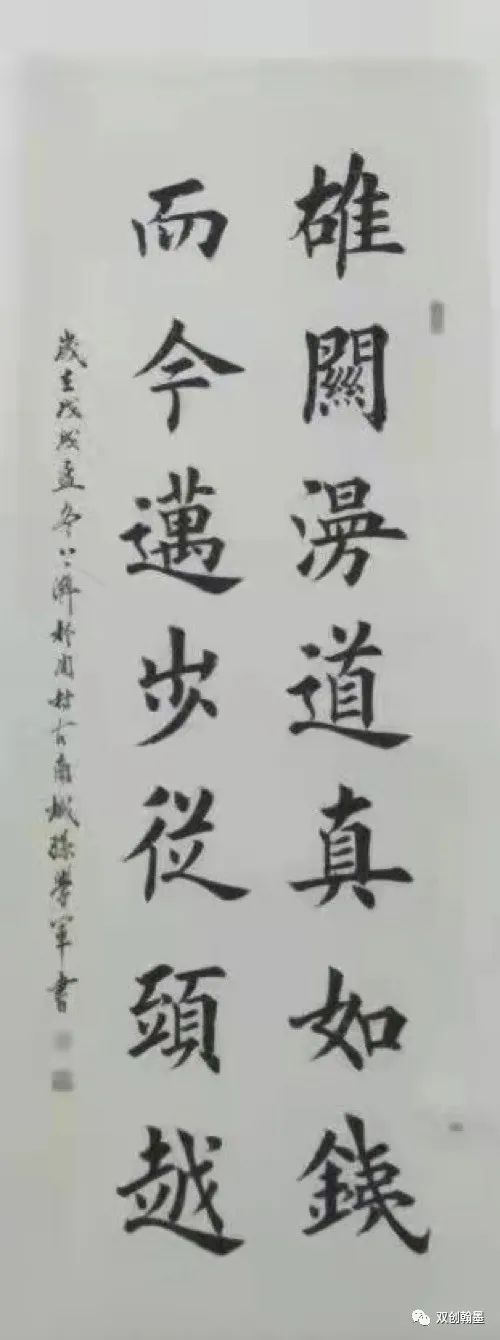 雄關漫道真如銕
而今邁步從頭越
歲在戊戌孟冬於周村古商城孫學軍書
双创翰墨